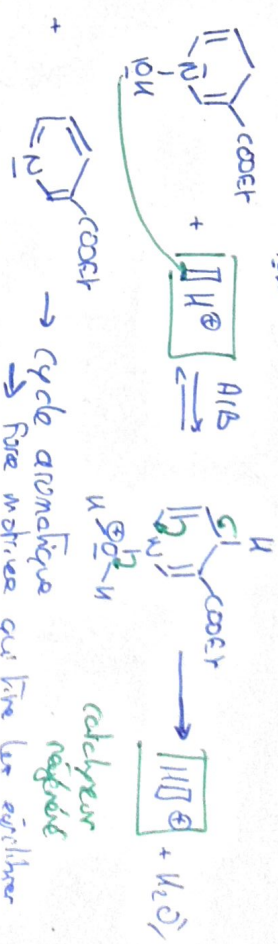 COOEt
N
|OH
+
H⊕
A/B
H
COOEt
N
H-O-H
⊕
H⊕
+ H₂O,
catalyseur
régénéré
+
COOEt
N
→ Cycle aromatique
→ force motrice qui tire les équilibres